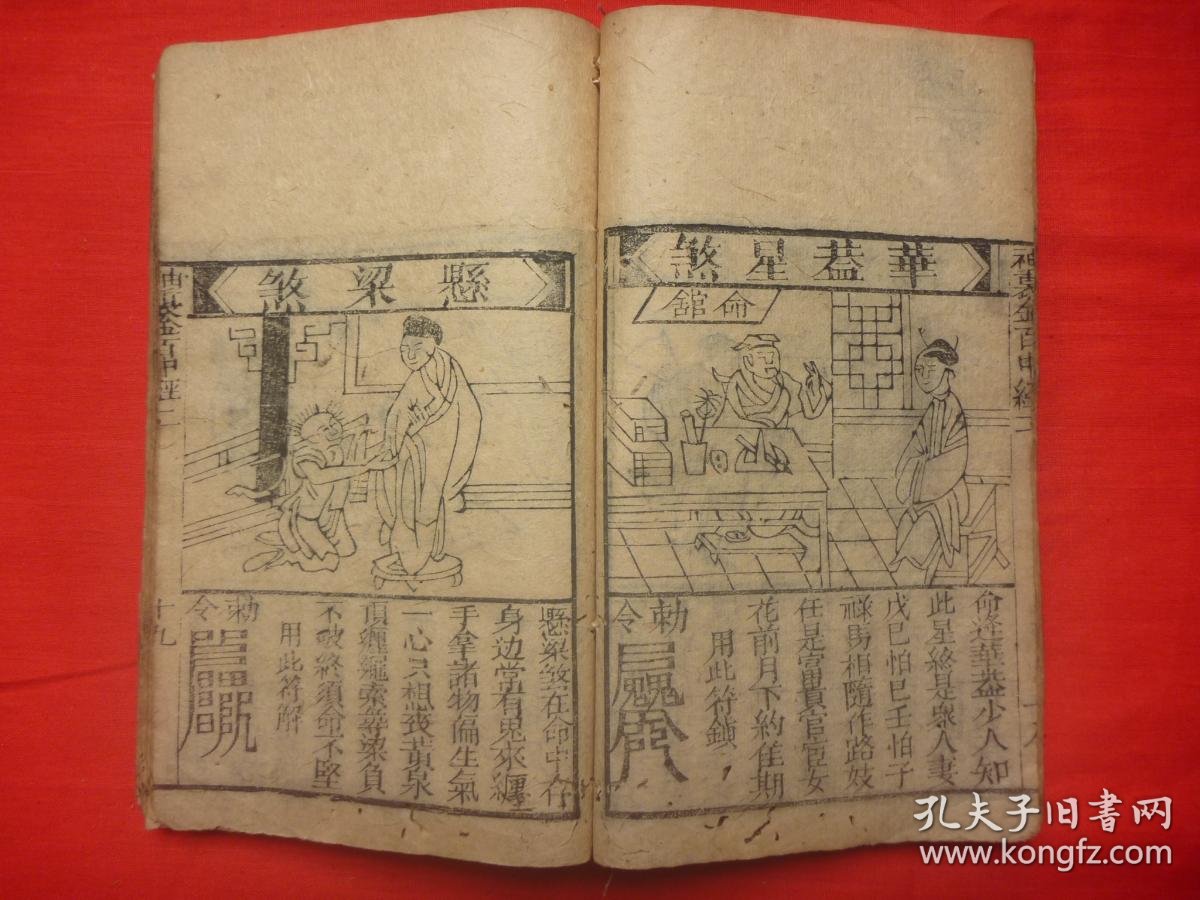 華葢星煞
命舘
命逢華葢少人知
此星終是衆人妻
戊己怕巳壬怕子
祿馬相隨作路妓
任是富貴官宦女
花前月下約佳期
用此符鎖
勅令
十八
懸梁煞
懸梁煞在命中存
身边常有鬼來纏
手拿諸物偏生氣
一心只想喪黃泉
頂纏繩索等梁負
不破終須命不堅
用此符解
勅令
金百中經二
十九
孔夫子旧书网
www.kongfz.com